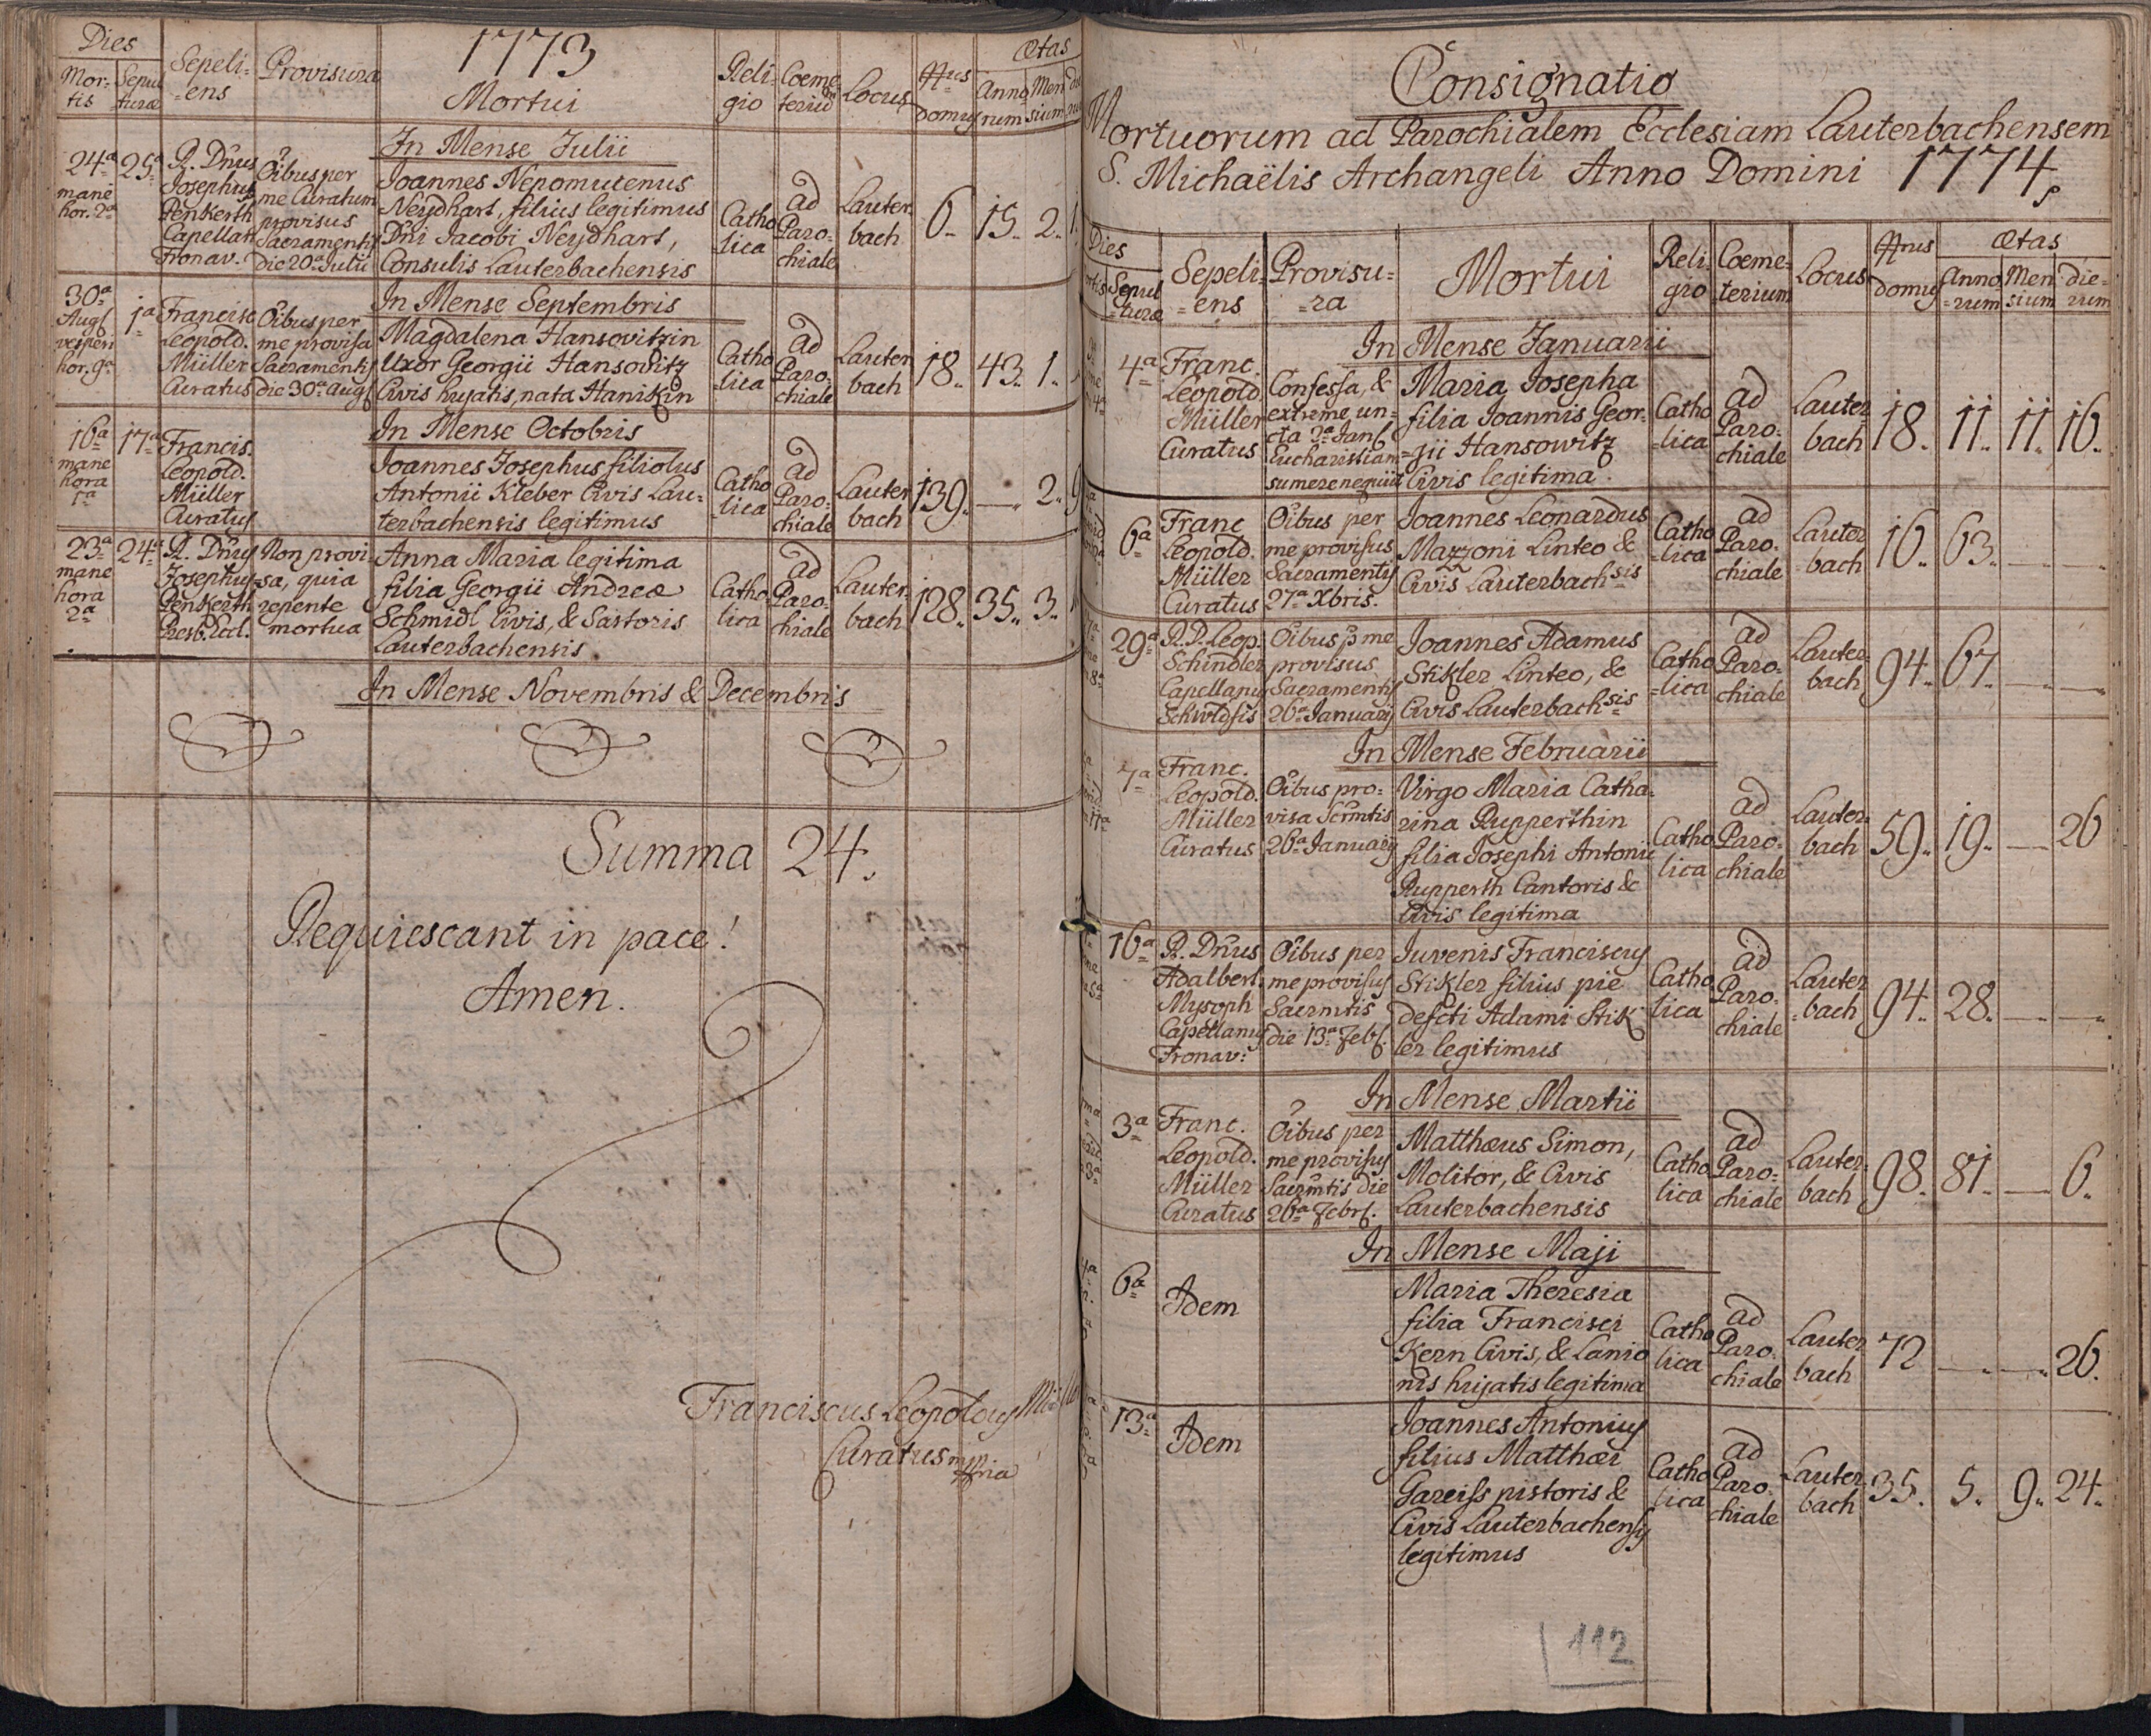 Dies
Mor=
tis
Sepul
=turæ
Sepeli=
=ens
Provisura
1773
Mortui
Reli=
gio
Coeme
terium
Locus
Nrus
Domus
Ætas
Anno
rum
Men
sium
In Mense Julii
24ª
mane
hor. 2ª
25ª
R. Dnus
Josephus
Penkerth
Capellan
Fronav.
Oibus per
me Curatum
provisus
Sacramentis
die 20ª Julii
Joannes Nepomucenus
Neydhart, filius legitimus
Dni Jacobi Neydhart,
Consulis Lauterbachensis
Catho
lica
ad
Paro=
chiale
Lauter
bach
6. 15. 2.
In Mense Septembris
30ª
Aug
vesperi
hor. 9ª
1ª
Francisc
Leopold.
Müller
Curatus
Oibus per
me provisa
Sacramentis
die 30ª Aug
Magdalena Hansovitzin
Uxor Georgii Hansovitz
Civis hujatis, nata Hanikin
Catho
=lica
ad
Paro=
chiale
Lauter
bach
18. 43. 1.
In Mense Octobris
16ª
mane
hora
1ª
17ª
Francis.
Leopold.
Müller
Curatus
Joannes Josephus filiolus
Antonii Kleber Civis Lau=
terbachensis legitimus
Catho
=lica
ad
Paro=
chiale
Lauter
bach
139. — 2. 9
23ª
mane
hora
2ª
24ª
R. Dnus
Josephus
Penkerth
Presb. Eccl.
Non provi
=sa, quia
repente
mortua
Anna Maria legitima
filia Georgii Andreæ
Schmidl Civis, & Sartoris
Lauterbachensis
Catho
lica
ad
Paro=
chiale
Lauter
bach
128. 35. 3.
In Mense Novembris & Decembris
Summa 24.
Requiescant in pace!
Amen.
Franciscus Leopoldus Müller
Curatus mppria
Consignatio
Mortuorum ad Parochialem Ecclesiam Lauterbachensem
S. Michaëlis Archangeli Anno Domini 1774
Dies
Sepul
=turæ
Sepeli=
=ens
Provisu=
=ra
Mortui
Reli=
gio
Coeme=
terium
Locus
Nrus
Domus
Ætas
Anno
=rum
Men
sium
die=
rum
In Mense Januarii
4ª
Franc.
Leopold.
Müller
Curatus
Confessa, &
extreme un=
cta 2ª Jan
Eucharistiam
sumere nequiit
Maria Josepha
filia Joannis Geor=
=gii Hansowitz
Civis legitima.
Catho
=lica
ad
Paro=
chiale
Lauter
bach
18. 11. 11. 16.
6ª
Franc
Leopold.
Müller
Curatus
Oibus per
me provisus
Sacramentis
27ª Xbris.
Joannes Leonardus
Mazzoni Linteo &
Civis Lauterbachsis
Catho
=lica
ad
Paro=
chiale
Lauter
bach
16. 63. — —
29ª
R. D. Leop.
Schindler
Capellanus
Oibus p me
provisus
Sacramentis
26ª Januarij
Joannes Adamus
Stikler Linteo, &
Civis Lauterbachsis
Catho
=lica
ad
Paro=
chiale
Lauter=
bach
94. 67. — —
In Mense Februarii
7ª
Franc.
Leopold.
Müller
Curatus
Oibus pro=
visa Scrmtis
26ª Januarij
Virgo Maria Catha=
rina Rupperthin
filia Josephi Antonii
Rupperth Cantoris &
Civis legitima
Catho
lica
ad
Paro=
chiale
Lauter=
bach
59. 19. — 26
16ª
R. Dnus
Adalbert
Mysoph
Capellanus
Fronav:
Oibus per
me provisus
Sacrmtis
die 13ª Feb.
Juvenis Franciscus
Stikler filius pie
defcti Adami Stik
ler legitimus
Catho
lica
ad
Paro=
chiale
Lauter
bach
94. 28. — —
In Mense Martii
3ª
Franc.
Leopold.
Müller
Curatus
Oibus per
me provisus
Sacrmtis die
26ª Febr.
Matthæus Simon,
Molitor, & Civis
Lauterbachensis
Catho
lica
ad
Paro=
chiale
Lauter=
bach
98. 81. — 6.
In Mense Maji
6ª
Idem
Maria Theresia
filia Francisci
Kern Civis, & Lanio
nis hujatis legitima
Catho
lica
ad
Paro=
chiale
Lauter
bach
72 — — 26.
13ª
Idem
Joannes Antonius
filius Matthæi
Gareiss pistoris &
Civis Lauterbachensis
legitimus
Catho
lica
ad
Paro=
chiale
Lauter
bach
35. 5. 9. 24.
112